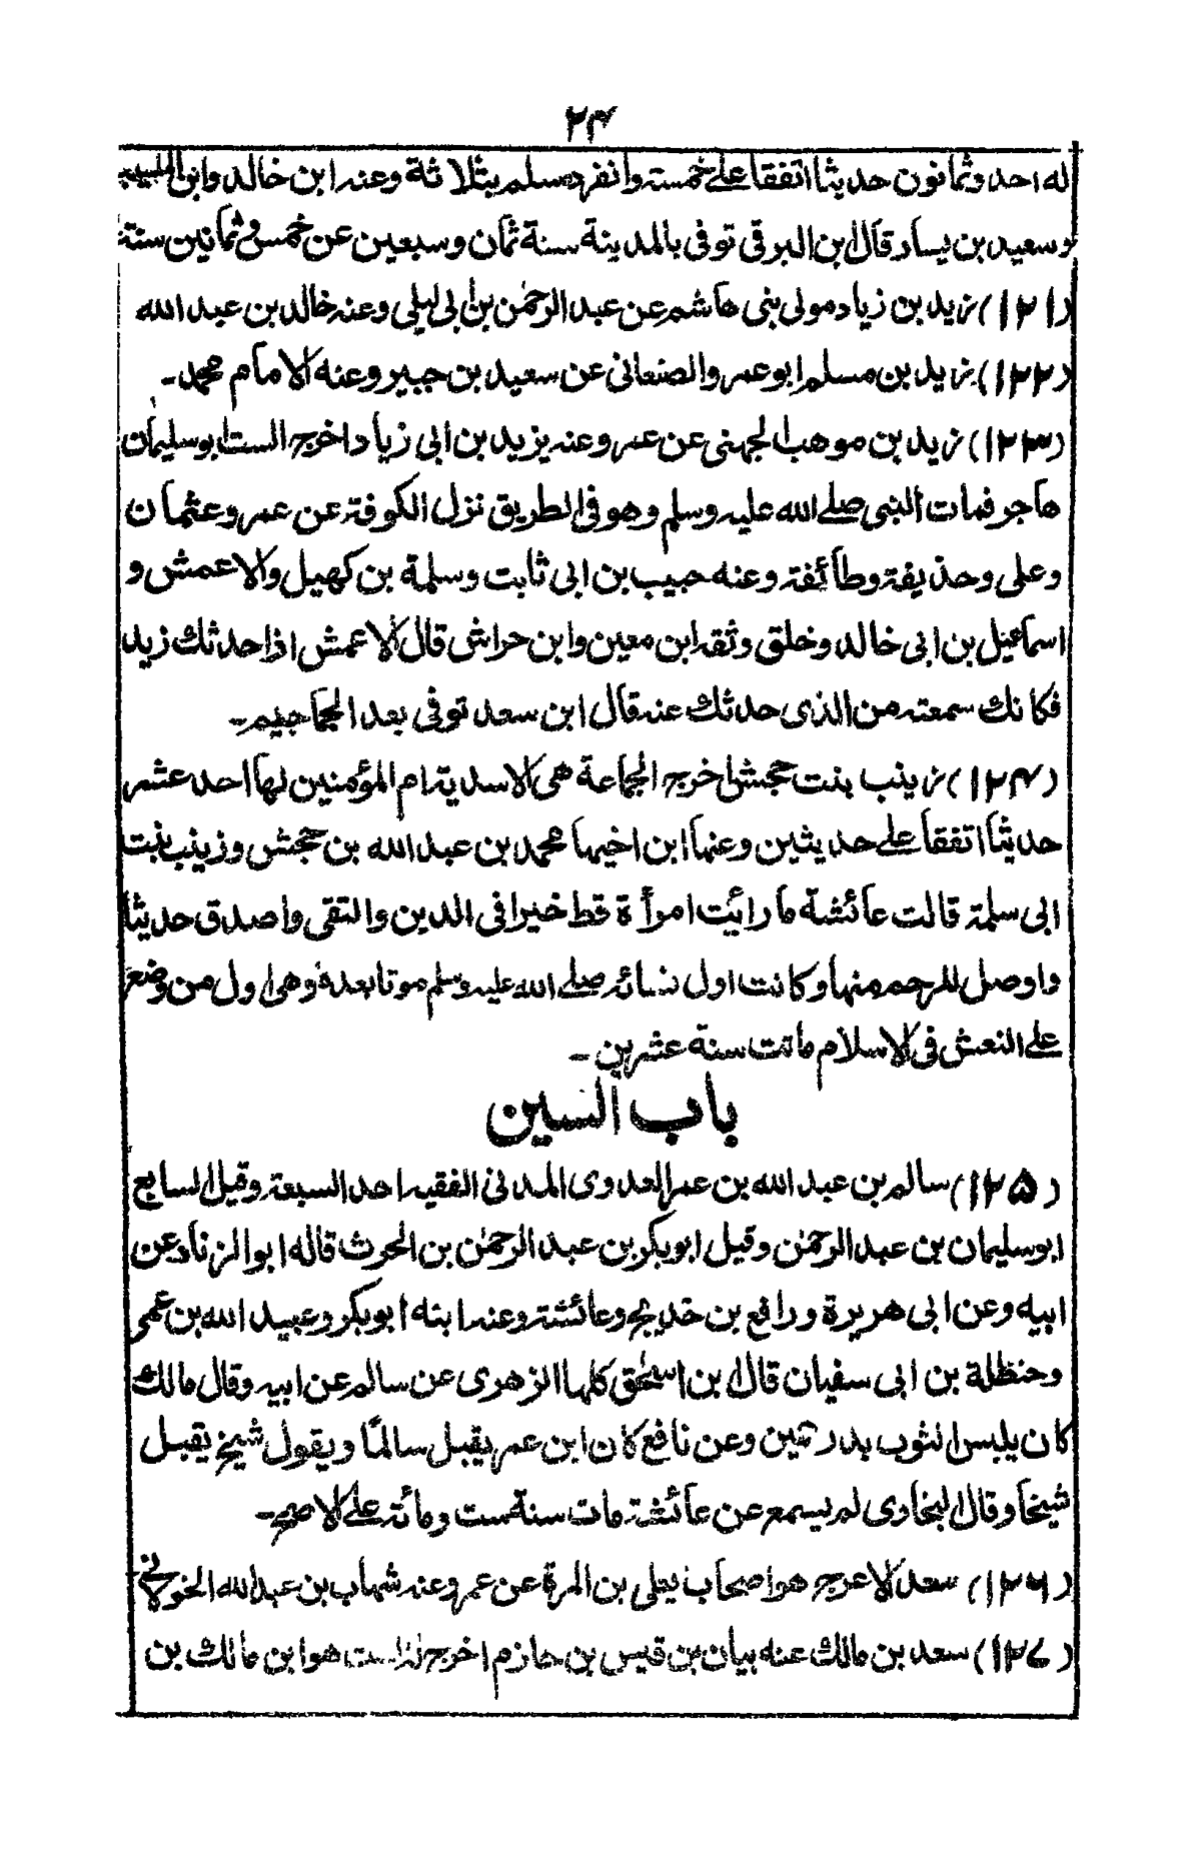 ۲۴
له احد وثمانون حديثا اتفقا على خمسة وانفرد مسلم بثلاثة وعنه ابن خالد وابن المسيب
وسعيد بن يسار قال ابن البرقى توفى بالمدينة سنة ثمان وسبعين عن خمس وثمانين سنة
(۱۲۱) زيد بن زياد مولى بنى هاشم عن عبد الرحمٰن بن ابى ليلى وعنه خالد بن عبد الله
(۱۲۲) زيد بن مسلم ابو عمرو الصنعانى عن سعيد بن جبير وعنه الامام محمد۔
(۱۲۳) زيد بن موهب الجهنى عن عمر وعنه يزيد بن ابى زياد اخرج الست ابو سليمان
هاجر فمات النبى صلے الله عليه وسلم وهو فى الطريق نزل الكوفة عن عمر وعثمان
وعلى وحذيفة وطائفة وعنه حبيب بن ابى ثابت وسلمة بن كهيل والاعمش و
اسماعيل بن ابى خالد وخلق وثقه ابن معين وابن حراش قال الاعمش اذا حدثك زيد
فكانك سمعته من الذى حدثك عنه قال ابن سعد توفى بعد الجماجم۔
(۱۲۴) زينب بنت جحش اخرج الجماعة هى الاسدية ام المؤمنين لها احد عشر
حديثا اتفقا على حديثين وعنها ابن اخيها محمد بن عبد الله بن جحش وزينب بنت
ابى سلمة قالت عائشة ما رائيت امرأة قط خيرا فى الدين والتقى واصدق حديثا
واوصل للرحم منها وكانت اول نسائه صلے الله عليه وسلم موتا بعده وهى اول من وضع
على النعش فى الاسلام ماتت سنة عشرين۔
باب السين
(۱۲۵) سالم بن عبد الله بن عمر العدوى المدنى الفقيه احد السبعة وقيل السابع
ابو سليمان بن عبد الرحمٰن وقيل ابوبكر بن عبد الرحمٰن بن الحرث قاله ابو الزناد عن
ابيه وعن ابى هريرة ورافع بن خديج وعائشة وعنه ابنه ابوبكر وعبيد الله بن عمر
وحنظلة بن ابى سفيان قال ابن اسحٰق كلها الزهرى عن سالم عن ابيه وقال مالك
كان يلبس الثوب بدرهمين وعن نافع كان ابن عمر يقبل سالمًا ويقول شيخ يقبل
شيخا وقال البخارى لم يسمع عن عائشة مات سنة ست ومائة على الاصح۔
(۱۲۶) سعد الاعرج هو اصحاب يعلى بن المرة عن عمر وعنه شهاب بن عبد الله الخولانى
(۱۲۷) سعد بن مالك عنه بيان بن قيس بن حازم اخرج الست هو ابن مالك بن